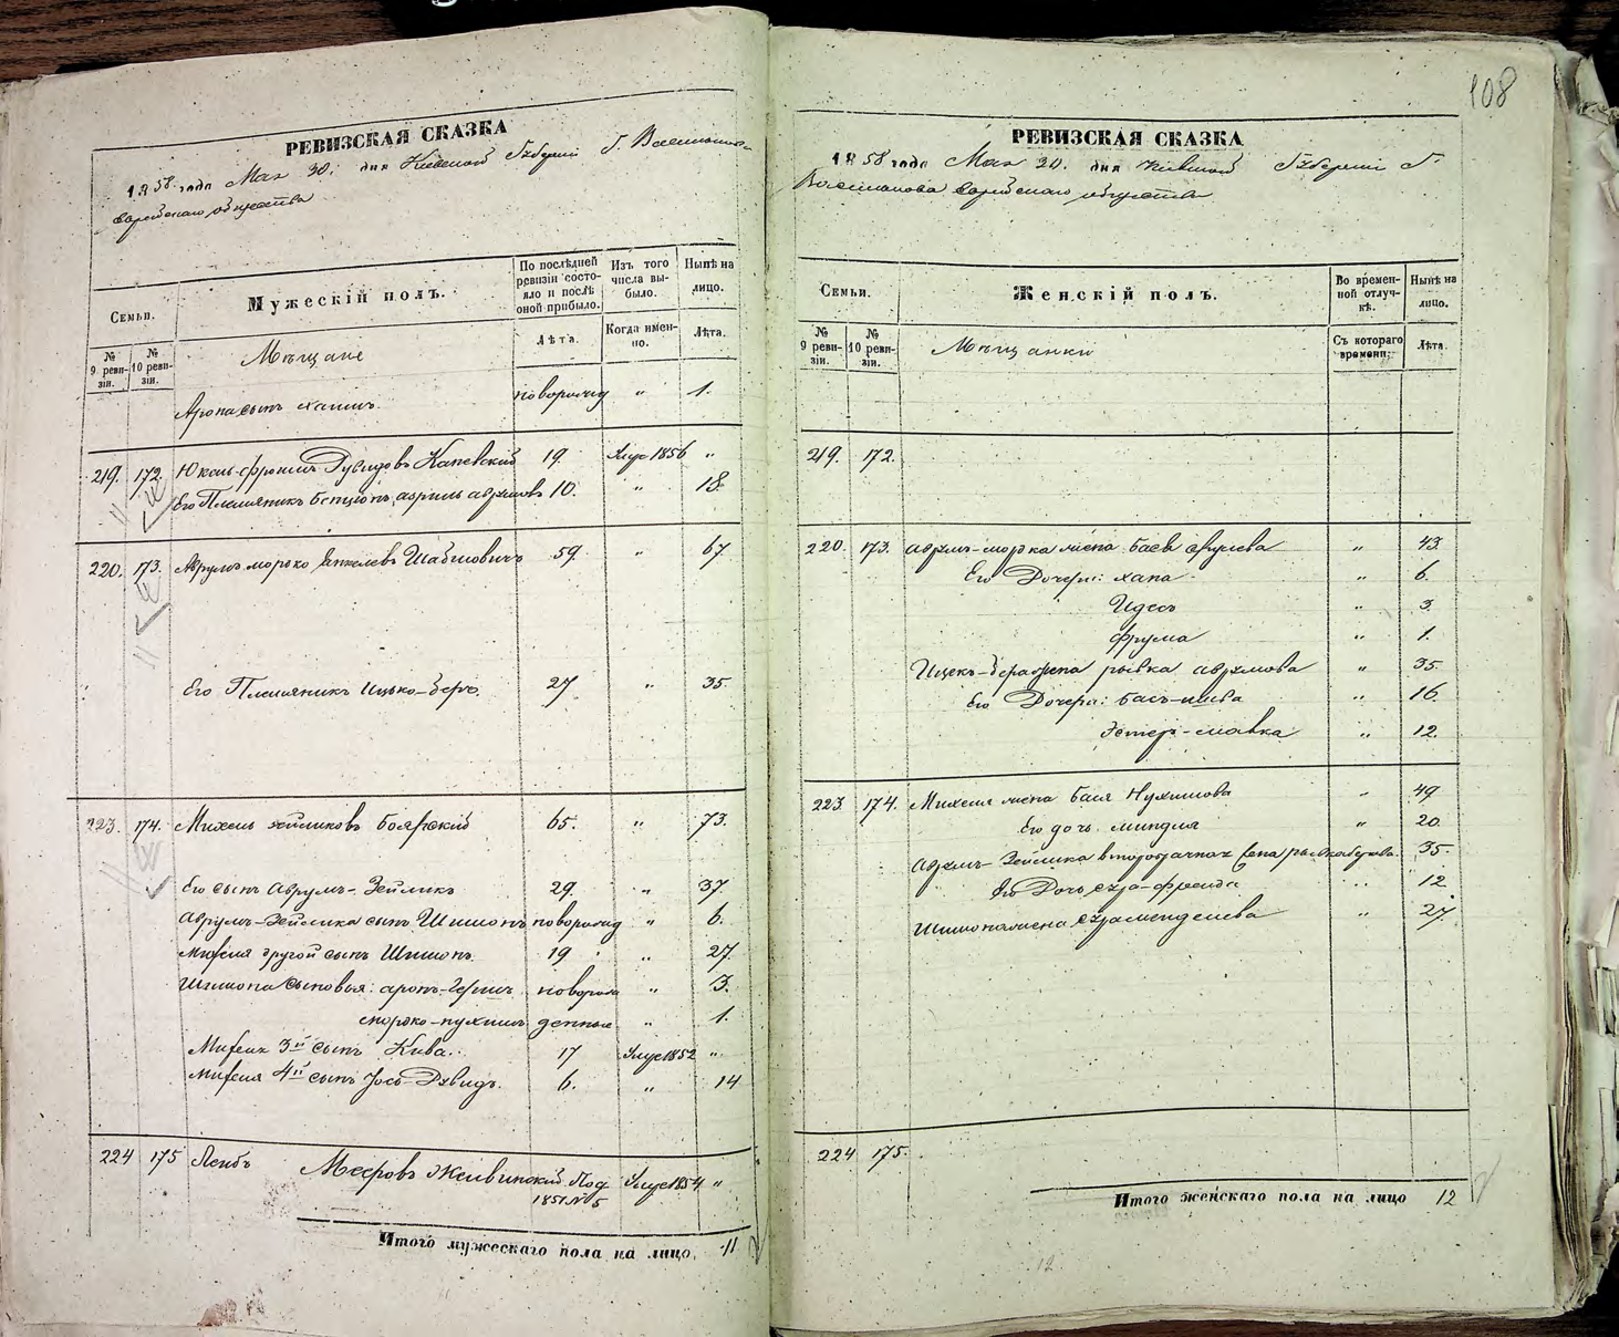 РЕВИЗСКАЯ СКАЗКА
1858 года Мая 30. дня Кіевской Губерніи Г. Василькова
Еврейскаго общества
Семьи.
Мужескій полъ.
По послѣдней ревизіи состояло и послѣ оной прибыло.
Изъ того числа выбыло.
Нынѣ на лицо.
№ 9 ревизіи.
№ 10 ревизіи.
Мѣщане
Лѣта.
Когда именно.
Лѣта.
Арона сынъ Хаимъ новорожд " 1.
219. 172. Юкель-Фроимъ Дувидовъ Каневский 19. 1856 "
Его Племянникъ Бенціонъ 10. " 18.
220. 173. Аврумъ-Мордко Янкелевъ Шабшовичъ 59 " 67
Его Племянникъ Ицько-Беръ. 27 " 35.
223. 174. Михель Зейликовъ Боярский 65. " 73.
Его сынъ Аврумъ-Зейликъ 29. " 37.
Аврумъ-Зейлика сынъ Шимонъ новорожд " 6.
Михеля другой сынъ Шимонъ. 19 " 27.
Шимона сыновья: Аронъ-Гершъ новорож " 3.
Мордко-Нухимъ денные " 1.
Михеля 3й сынъ Кива. 17 1852 "
Михеля 4й сынъ Іось-Дувидъ. 6. " 14
224 175 Лейбъ Мееровъ Жолвинский Под. 1854 "
1851 № 5
Итого мужескаго пола на лицо, 11
108
РЕВИЗСКАЯ СКАЗКА
1858 года Мая 30. дня Кіевской Губерніи Г.
Василькова Еврейскаго общества
Семьи.
Женскій полъ.
Во временной отлучкѣ.
Нынѣ на лицо.
№ 9 ревизіи.
№ 10 ревизіи.
Мѣщанки
Съ котораго времени.
Лѣта.
219. 172.
220. 173. Аврумъ-Мордка жена " 43
Его Дочери: Хана " 6.
Идесъ " 3.
Фрума " 1.
Ицекъ-Бера жена Рывка Аврумова " 35.
Его Дочери: Бася- " 16.
Эстеръ-Малка " 12.
223 174. Михеля жена Бася Нухимова " 49
Его дочь Миндля " 20.
Аврумъ-Зейлика второбрачная жена 35.
Его Дочь Сура-Фрейда " 12
Шимона жена Сура Менделева " 27.
224 175.
Итого женскаго пола на лицо 12
12